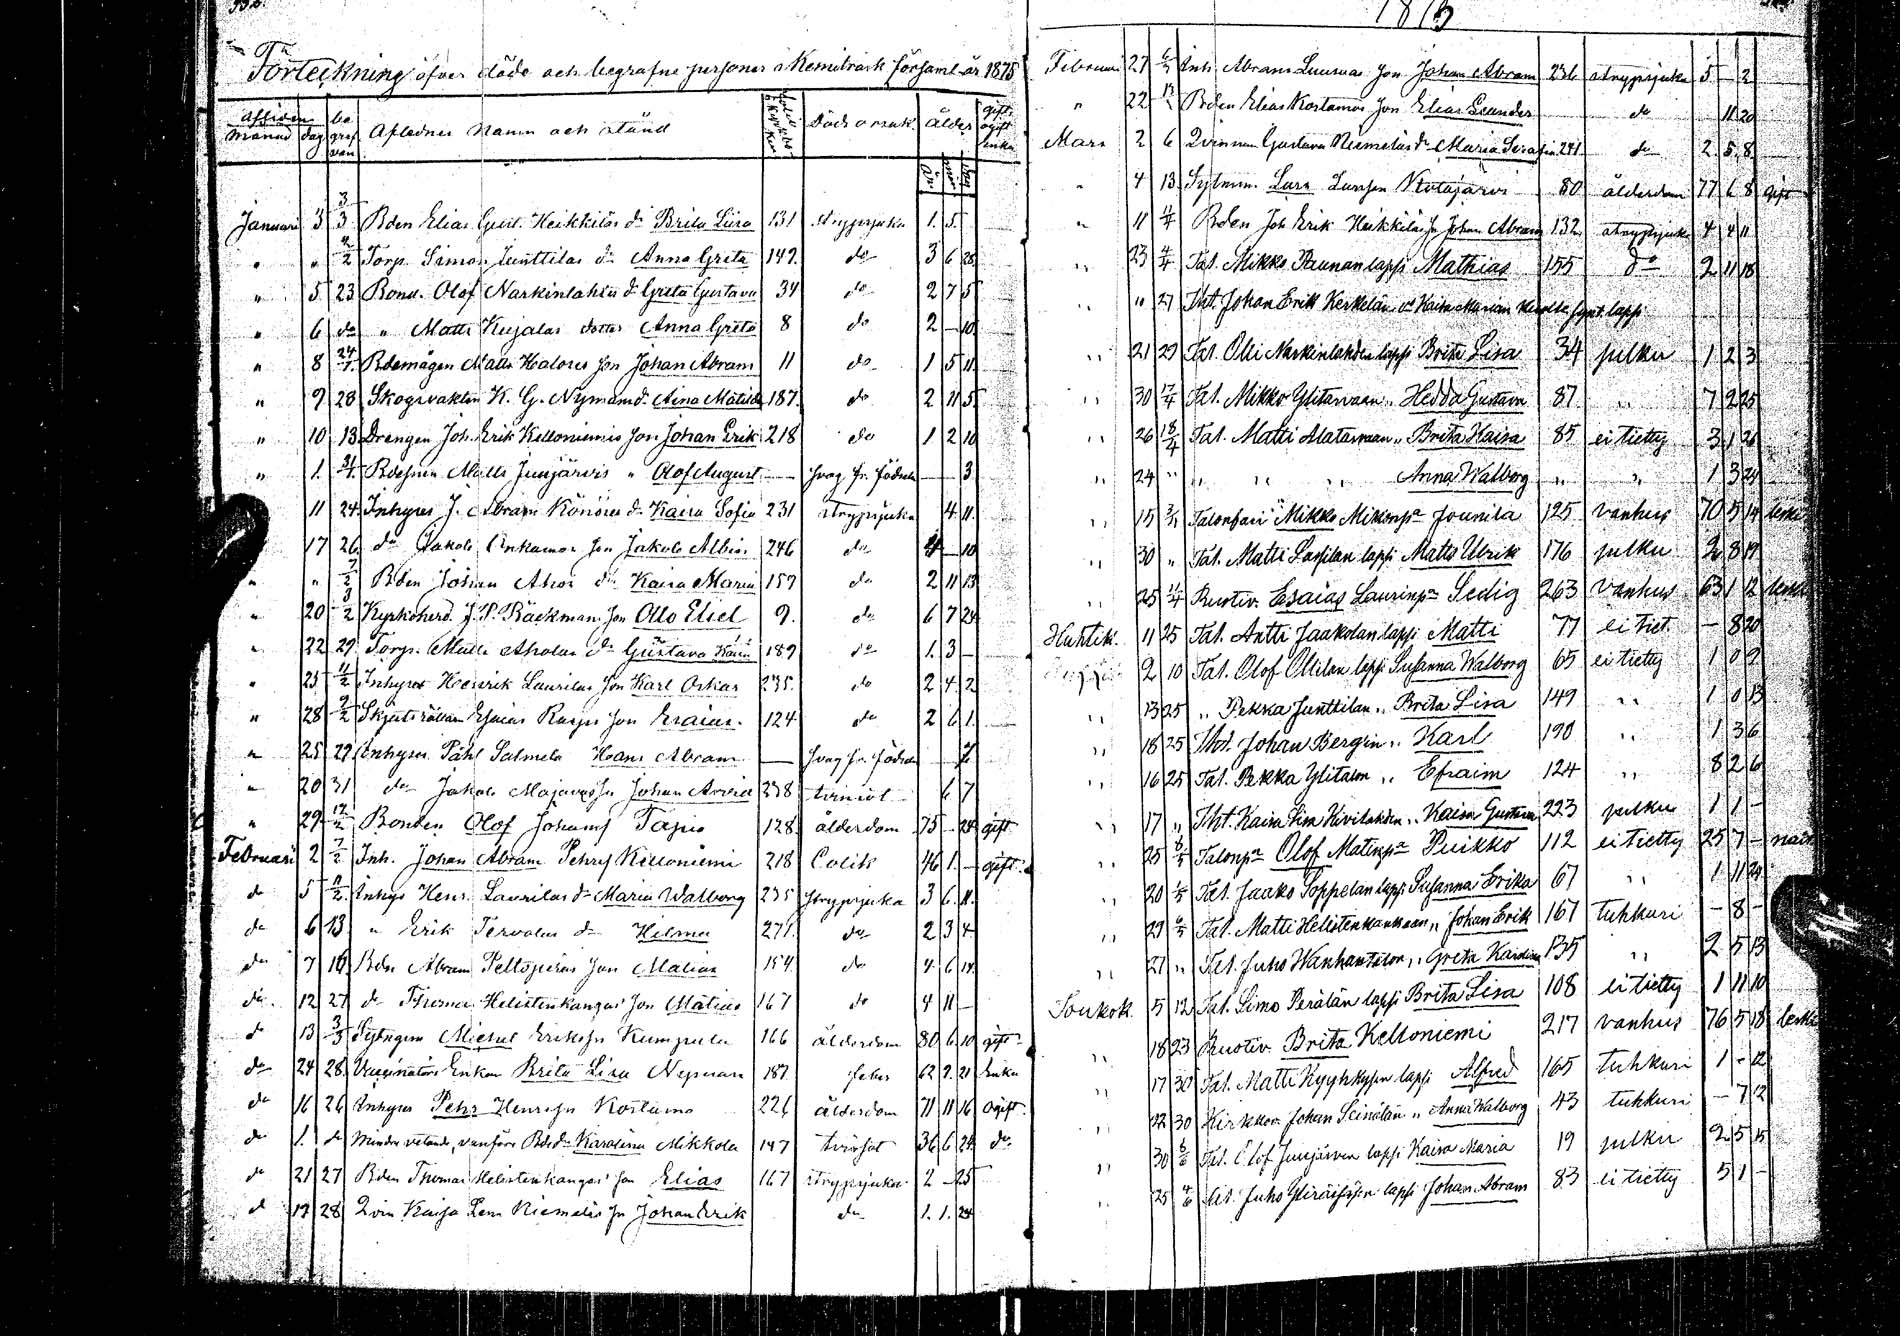 1875
Förteckning öfver döde och begrafne personer i Kemiträsk församl. år 1875
Afliden månad dag be graf ven Aflednes namn och stånd Döds orsak ålder gift ogift enka
år mån dag
Januari 3 3/3 Bden Elias Gust. Heikkiläs dr Brita Liisa 131 strypsjuka 1. 5.
" " 9/2 Torp. Simon Junttilas dr Anna Greta 149. do 3 6 28
" 5 23 Bond. Olof Narkinlahtis d. Greta Gustava 34 do 2 7 5
" 6 do " Matts Kujalas dotter Anna Greta 8 do 2 – 10
" 8 24/1 Bdemågen Matts Halosis son Johan Abram 11 do 1 5 11
" 9 23 Skogsvaktm K. G. Nyman d. Aina Matilda 187. do 2 11 5
" 10 13 Drengen Joh. Erik Kelloniemis son Johan Erik 218 do 1 2 10
" 1. 31/1 Bdesonen Matts Junjärvis " Olof August — svag fr. födseln — 3
11 24. Inhyses J. Abram Könöses d. Kaisa Sofia 231 strypsjuka 4. 11.
17 26 do Jakob Onkamos son Jakob Albin 246 do 4 – 10
" " 7/2 Bden Johan Ahos dr Kaisa Maria 159 do 2 11 13
" 20 3/2 Kyrkoherd. J. P. Bäckmans son Otto Eliel 9. do 6 7 24
" 22 29 Torp. Matts Aholas dr Gustava Karin 189 do 1. 3 –
" 23 11/2 Inhyses Henrik Laurilas son Karl Oskar 235. do 2 4. 2
" 28 9/2 Skjutsrättarn Esaias Raajas son Esaias 124 do 2 6 1.
" 25 29 Inhyses Påhl Salmela Hans Abram — svag fr. födseln 7
" 20 31 do Jakob Majavas son Johan Arvid 238 tvinsot 6 7
" 29 12/2 Bonden Olof Johansson Tapio 128. ålderdom 75 – 24 gift
Februari 2 7/2 Inh. Johan Abram Pehrss Kelloniemi 218 Colik 46 1. – gift
do 5 11/2 Inhyses Henr. Laurilas dr Maria Walborg 235 strypsjuka 3 6. 11.
do 6 13 " Erik Tervolas dr Hilma 271. do 2 3 4.
do 7 16 Bden Abram Peltoperäs son Matias 154 do 4. 6 14
do 12 27 do Thomas Helistenkangas' son Matias 167 do 4 11 –
do 13 3/3 Sytngsm Michel Eriksson Kumpula 166 ålderdom 80 6. 10 gift
do 24 28. Vaccinatörs Enkan Brita Lisa Nyman 187 feber 62 9. 21 Enka
do 16 26 Inhyses Pehr Henrsson Kostamo 226 ålderdom 71 11 16 ogift
do 1. do Mindre vetande, vanföre Bdedr Karolina Mikkola 147 tvinsot 36 6 24. do
do 21 27 Bden Thomas Helistenkangas' son Elias 167 strypsjuka 2 – 25
do 19 28 Qvin Kaisa Lena Niemeläs son Johan Erik do 1. 1. 24
Februari 27 6/3 Inh. Abram Luusuas son Johan Abram 236 strypsjuka 5 – 2
" 22 13 Bden Elias Kostamos son Elias Leander do 11 20
Mars 2 6 Qvinnan Gustava Niemeläs dr Maria Serafia 241 do 2. 5. 8.
" 4 13. Sytnm. Lars Larsson Kutajärvi 80 ålderdom 77 6 8 gift
" 11 11/4 Bden Joh Erik Heikkiläs son Johan Abram 132 strypsjuka 4 4 11
" 23 4/4 Tal. Mikko Paunan lapsi Mathias 155 do 2 11 18
" " 27 Itst. Johan Erik Kerkelän ja Kaisa Marian kuolla synt. lapsi
" 21 29 Tal. Olli Narkinlahden lapsi Brita Lisa 34 julku 1 2 3
" 30 17/4 Tal. Mikko Ylitarvaan " Hedda Gustava 87 " 7 2 25
" 26 18/4 Tal. Matti Alatarvaan " Brita Kaisa 85 ei tietty 3 1 26
" 24 " " " " Anna Walborg " " 1 3 24
" 15 3/4 Talonfari Mikko Mikonpa Jounila 125 vanhus 70 5 14 leski
" 30 " Tal. Matti Lassilan lapsi Matts Ulrik 176 julku 2 8 19
" 25 11/4 Ruotiv. Esaias Laurinpa Sedig 263 vanhus 63 1 12 leski
Huhtik. 11 25 Tal. Antti Jaakolan lapsi Matti 77 ei tiet. – 8 20
2 10 Tal. Olof Ollilan lapsi Susanna Walborg 65 ei tietty 1 0 9
" 13 25 " Pekka Junttilan " Brita Lisa 149 " 1 0 13
" 18 25 Itst. Johan Bergin " Karl 190 " 1 3 6
" 16 25 Tal. Pekka Ylitalon " Efraim 124 " 8 2 6
" 17 " Itst. Kaisa Lisa Hivilahden " Kaisa Gustava 223 julku 1 1 –
" 25 6/5 Talonpa Olof Matinpa Puikko 112 ei tietty 25 7 – nain
" 20 1/5 Tal. Jaako Soppelan lapsi Susanna Erika 67 " 1 11 24
" 29 6/5 Tal. Matti Helistenkankaan " Johan Erik 167 tuhkuri – 8 –
" 27 " Tal. Juho Wanhantalon " Greta Karolina 135 " 2 5 13
Toukok. 5 12 Tal. Simo Perälän lapsi Brita Lisa 108 ei tietty 1 11 10
" 18 23 Ruotiv. Brita Kelloniemi 217 vanhus 76 5 18 leski
" 17 30 Tal. Matti Kyyhkysen lapsi Alfred 165 tuhkuri 1 – 12
" 22 30 Kirkkov. Johan Leinälän " Anna Walborg 43 tuhkuri – 7 12
" 30 6/6 Tal. Olof Junjärven lapsi Kaisa Maria 19 julku 2 5 15
" 25 4/6 Tal. Juho Yliräisäsen lapsi Johan Abram 83 ei tietty 5 1 –